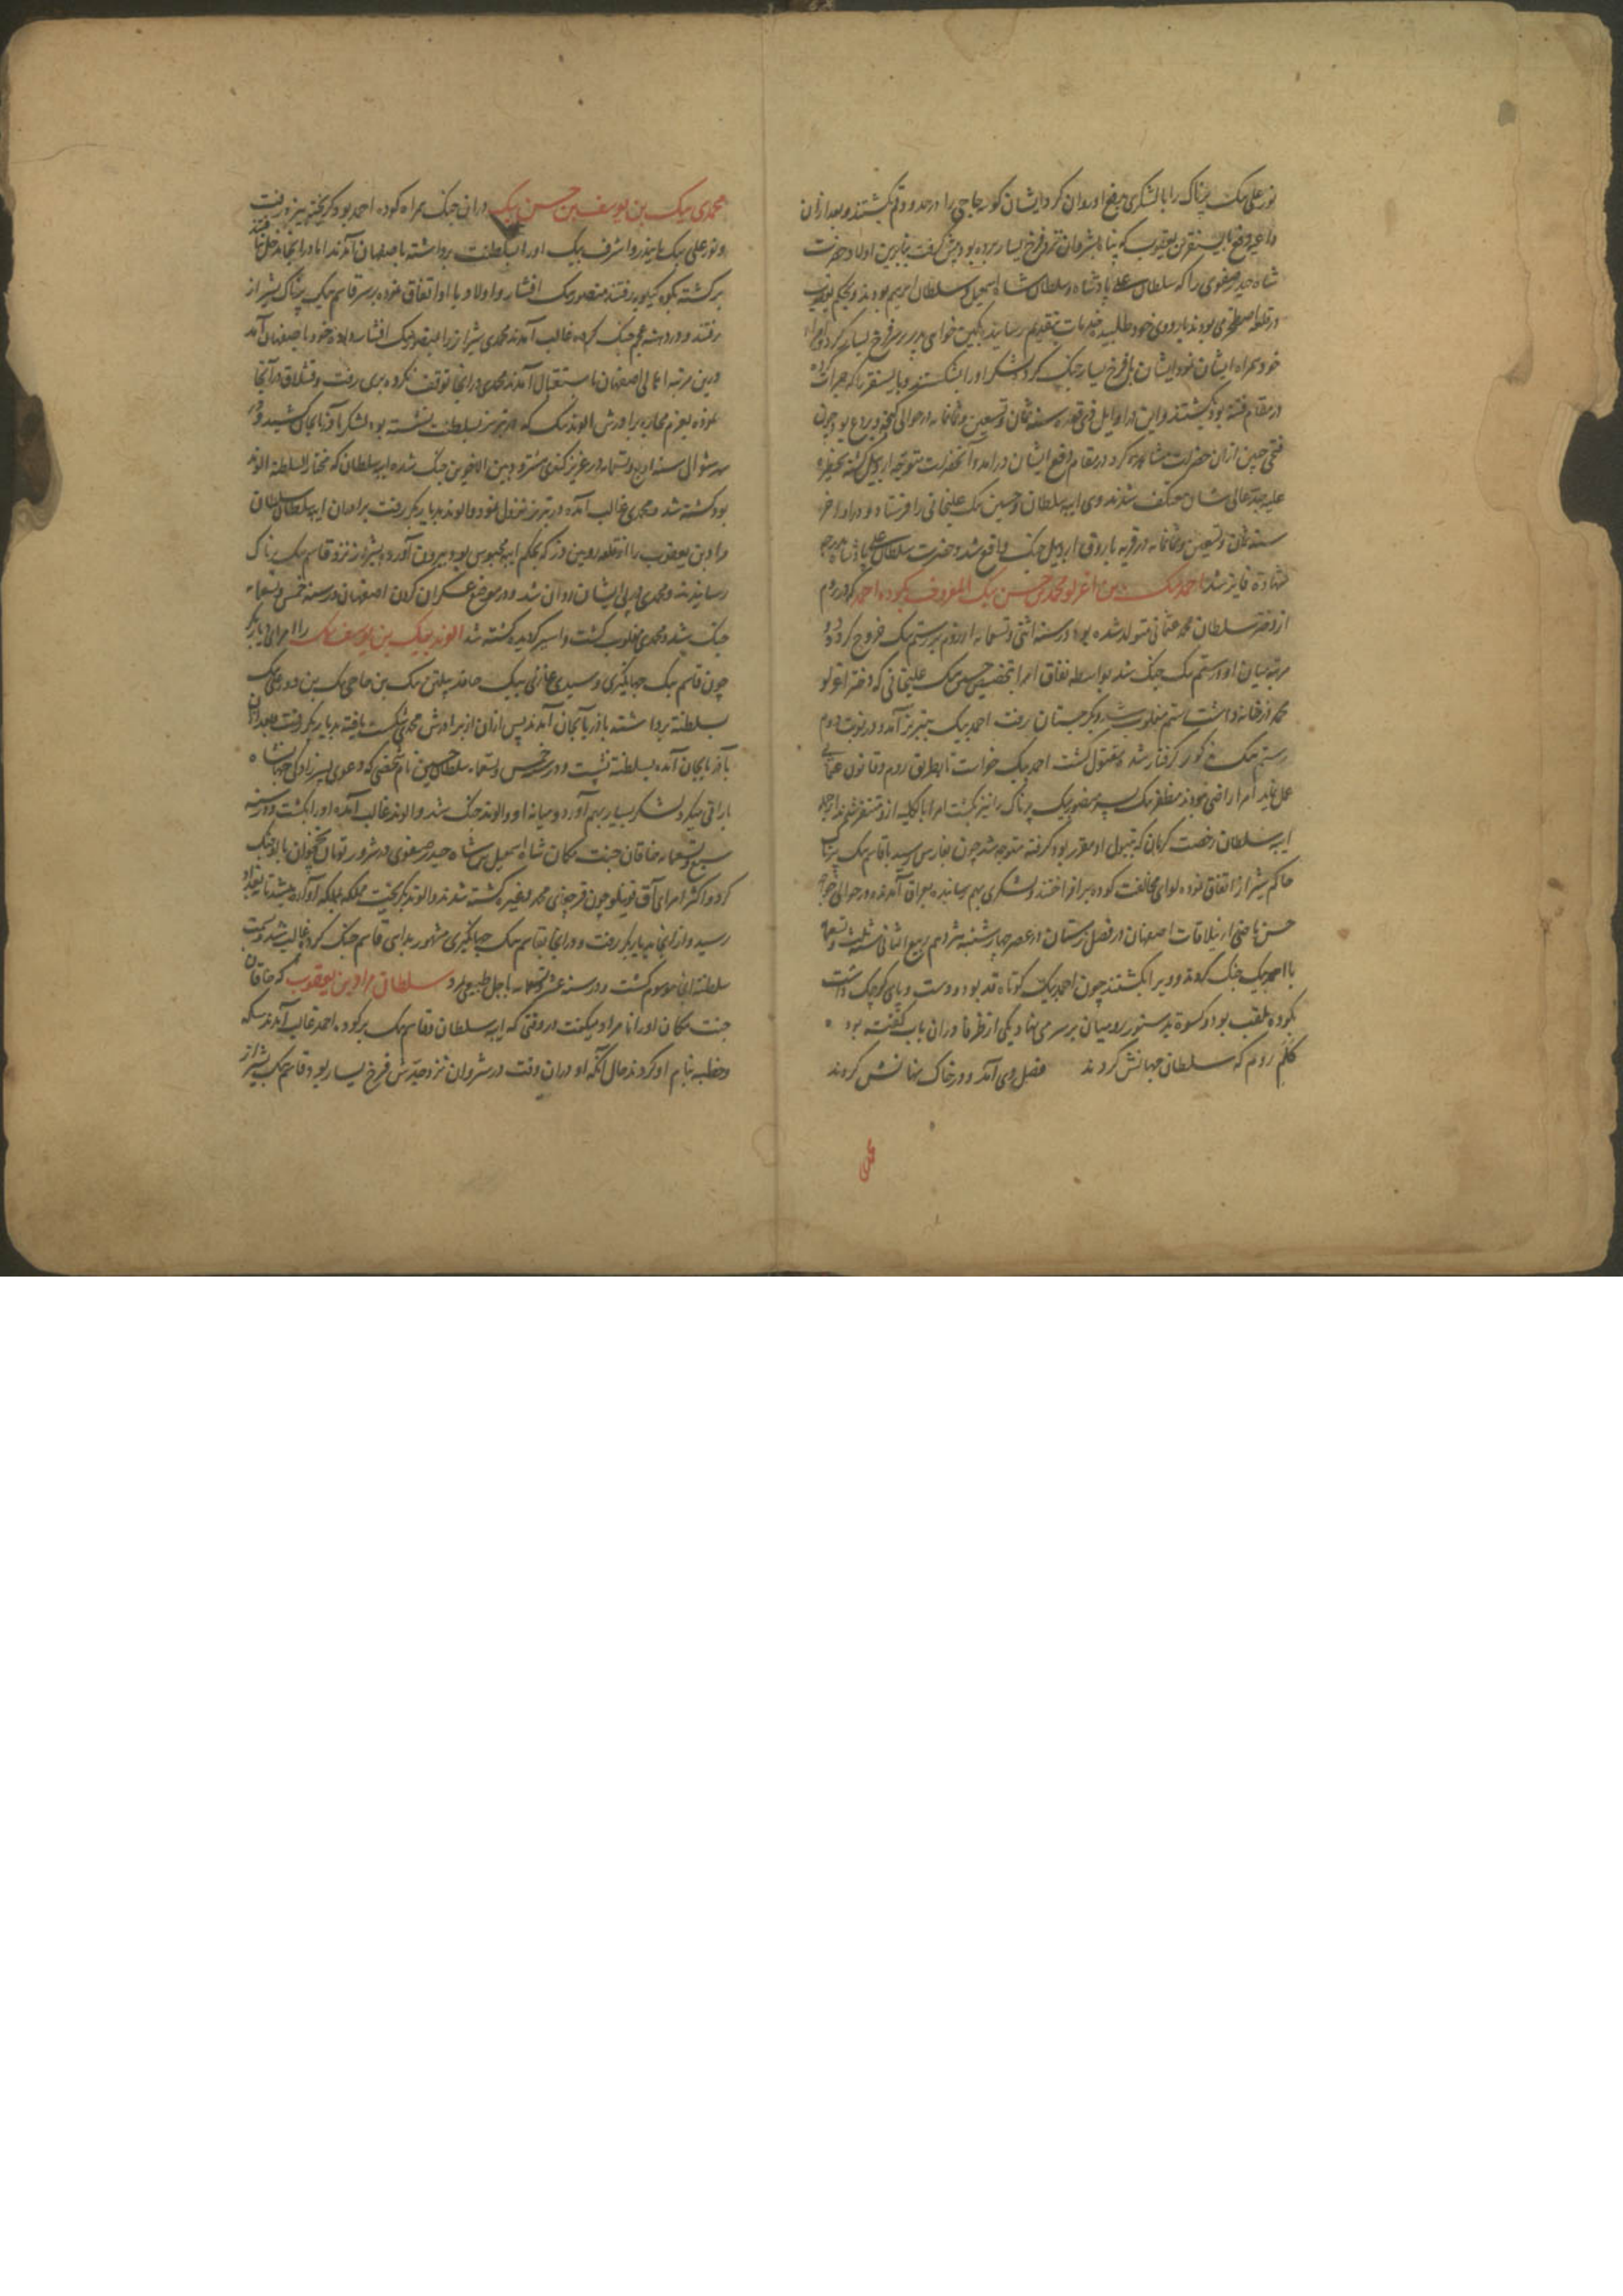 نور علی بیک پرناک را با لشکری بدفع او روان کرد ایشان کوسه حاجی را در حدود قم بکشتند و بعد ازان
داعیه دفع بایسنقر بن یعقوب که پناه بشروان نزد فرخ یسار برده بود پیش گرفت بنابرین اولاد حضرت
شاه حیدر صفوی را که سلطان علی پادشاه و سلطان شاه اسمعیل و سلطان ابرهیم بودند و بحکم یعقوب
در قلعه اصطخر می بودند باردوی خود طلبیده خدمات بتقدیم رسانید بکین خواهی پدر بر سر فرخ یسار کرد و امراء
خود همراه ایشان نمود ایشان با فرخ یسار جنگ کرده لشکر او را شکستند و بایسنقر را که
در مقام فتنه بود بکشتند و این در اوایل ذی قعده سنه ثمان و تسعین و ثمانمایه در حوالی گنجه و بردع بود چون
فتحی چنین ازان حضرت مشاهده کرد در مقام دفع ایشان درآمد و آنحضرت متوجه اردبیل شده بحظیره
علیه جد عالی شان معتکف شدند وی ایبه سلطان و حسین بیک علیخانی را فرستاد و در اواخر
سنه ثمان و تسعین و ثمانمایه در قریه باروق اردبیل جنگ واقع شد و حضرت سلطان علی پادشاه بدرجه
شهادت فایز شد احمد بیک بن اغرلو محمد بن حسن بیک المعروف بکوده احمد که در روم
از دختر سلطان محمد عثمانی متولد شده بود در سنه اثنی و تسعمایه از روم بر رستم بیک خروج کرد و دو
مرتبه میان او و رستم بیک جنگ شد بواسطه نفاق امرا بتخصیص حسین بیک علیخانی که دختر اغرلو
محمد در خانه داشت رستم مغلوب شد و بگرجستان رفت احمد بیک بتبریز آمد و در نوبت دوم
رستم بیک مذکور گرفتار شد و مقتول گشت احمد بیک خواست تا بطریق روم و قانون عثمانی
عمل نماید امرا راضی نبودند مظفر بیک بن منصور بیک پرناک را نیز بکشت امرا بالکلیه ازو متنفر شدند از جمله
ایبه سلطان رخصت کرمان که بتیول او مقرر بود گرفته متوجه شد چون بفارس رسید با قاسم بیک پرناک
حاکم شیراز اتفاق نموده لوای مخالفت کوده برافراختند و لشکری بهم رسانیده بعراق آمدند و در حوالی خواجه
حسن ماضی از ییلاقات اصفهان در فصل زمستان در عصر چهارشنبه شزدهم ربیع الثانی سنه ثلث و تسعمایه
با احمد بیک جنگ کردند و ویرا بکشتند چون احمد بیک کوتاه قد بود و دست و پای کوچک داشت
بکوده ملقب بود و کسوه بدستور رومیان بر سر می نهاد یکی از ظرفا دران باب گفته بود
کلم روم که سلطان جهانش کردند فصل دی آمد و در خاک نهانش کردند
محمدی
محمدی بیک بن یوسف بن حسن بیک دران جنگ همراه کوده احمد بود گریخته بیزد رفت
و نور علی بیک بایندر و اشرف بیک او را بسلطنت برداشته باصفهان آمدند اما در آنجا مدخل نیافتند
برگشته بکوه کیلویه رفتند منصور بیک افشار و اولاد با او اتفاق نموده بر سر قاسم بیک پرناک بشیراز
رفتند و در دشت عجم جنگ کرده غالب آمدند محمدی شیراز را بمنصور بیک افشار داده خود باصفهان آمد
درین مرتبه اهالی اصفهان باستقبال آمدند محمدی در آنجا توقف نکرده بری رفت و قشلاق در آنجا
نموده بعزم محاربه برادرش الوند بیک که در تبریز بسلطنت نشسته بود لشکر باذربایجان کشید و در
شهر شوال سنه اربع و تسعمایه در عزیز کندی میانه بین الاخوین جنگ شده ایبه سلطان که مختار السلطنه الوند
بود کشته شد و محمدی غالب آمده در تبریز نزول نمود و الوند بدیاربکر رفت برادران ایبه سلطان سلطان
مراد بن یعقوب را از قلعه رویین دز که بحکم ایبه محبوس بود بیرون آورده بشیراز نزد قاسم بیک پرناک
رسانیدند و محمدی در پی ایشان روان شد و در موضع عسکران کرون اصفهان در سنه خمس و تسعمایه
جنگ شد و محمدی مغلوب گشت و اسیر گردیده کشته شد الوند بیک بن یوسف بیک را امرای دیاربکر
چون قاسم بیک جهانگیری و سیدی غازی بیک حامد بیلتن بیک بن حاجی بیک بن دور علی بیک
بسلطنت برداشتند باذربایجان آمدند پس ازان از برادرش محمدی شکست یافته بدیاربکر رفت بعد ازان
باذربایجان آمده بسلطنت نشست و در سنه خمس و تسعمایه سلطان حسین نام شخصی که دعوی پسرزادگی جهانشاه
بارانی میکرد لشکر بسیار بهم آورد و میانه او و الوند جنگ شد و الوند غالب آمده او را بکشت و در سنه
سبع و تسعمایه خاقان جنت مکان شاه اسمعیل بن شاه حیدر صفوی در شرور تومان نخجوان با او جنگ
کرد و اکثر امرای آق قوینلو چون قرچغای محمد و غیره کشته شدند و الوند بگریخت و مملکه بمملکه آواره میشد تا ببغداد
رسید و از آنجا بدیاربکر رفت و در آنجا با قاسم بیک جهانگیری مشهور بدایی قاسم جنگ کرد و غالب شد و بسمت
سلطنت آنجا موسوم گشت و در سنه عشر و تسعمایه باجل طبیعی مرد سلطان مراد بن یعقوب که خاقان
جنت مکان او را نامراد میگفت در وقتی که ایبه سلطان و قاسم بیک بر کوده احمد غالب آمدند سکه
و خطبه بنام او کردند و حال آنکه او دران وقت در شروان نزد جدش فرخ یسار بود و قاسم بیک بشیراز